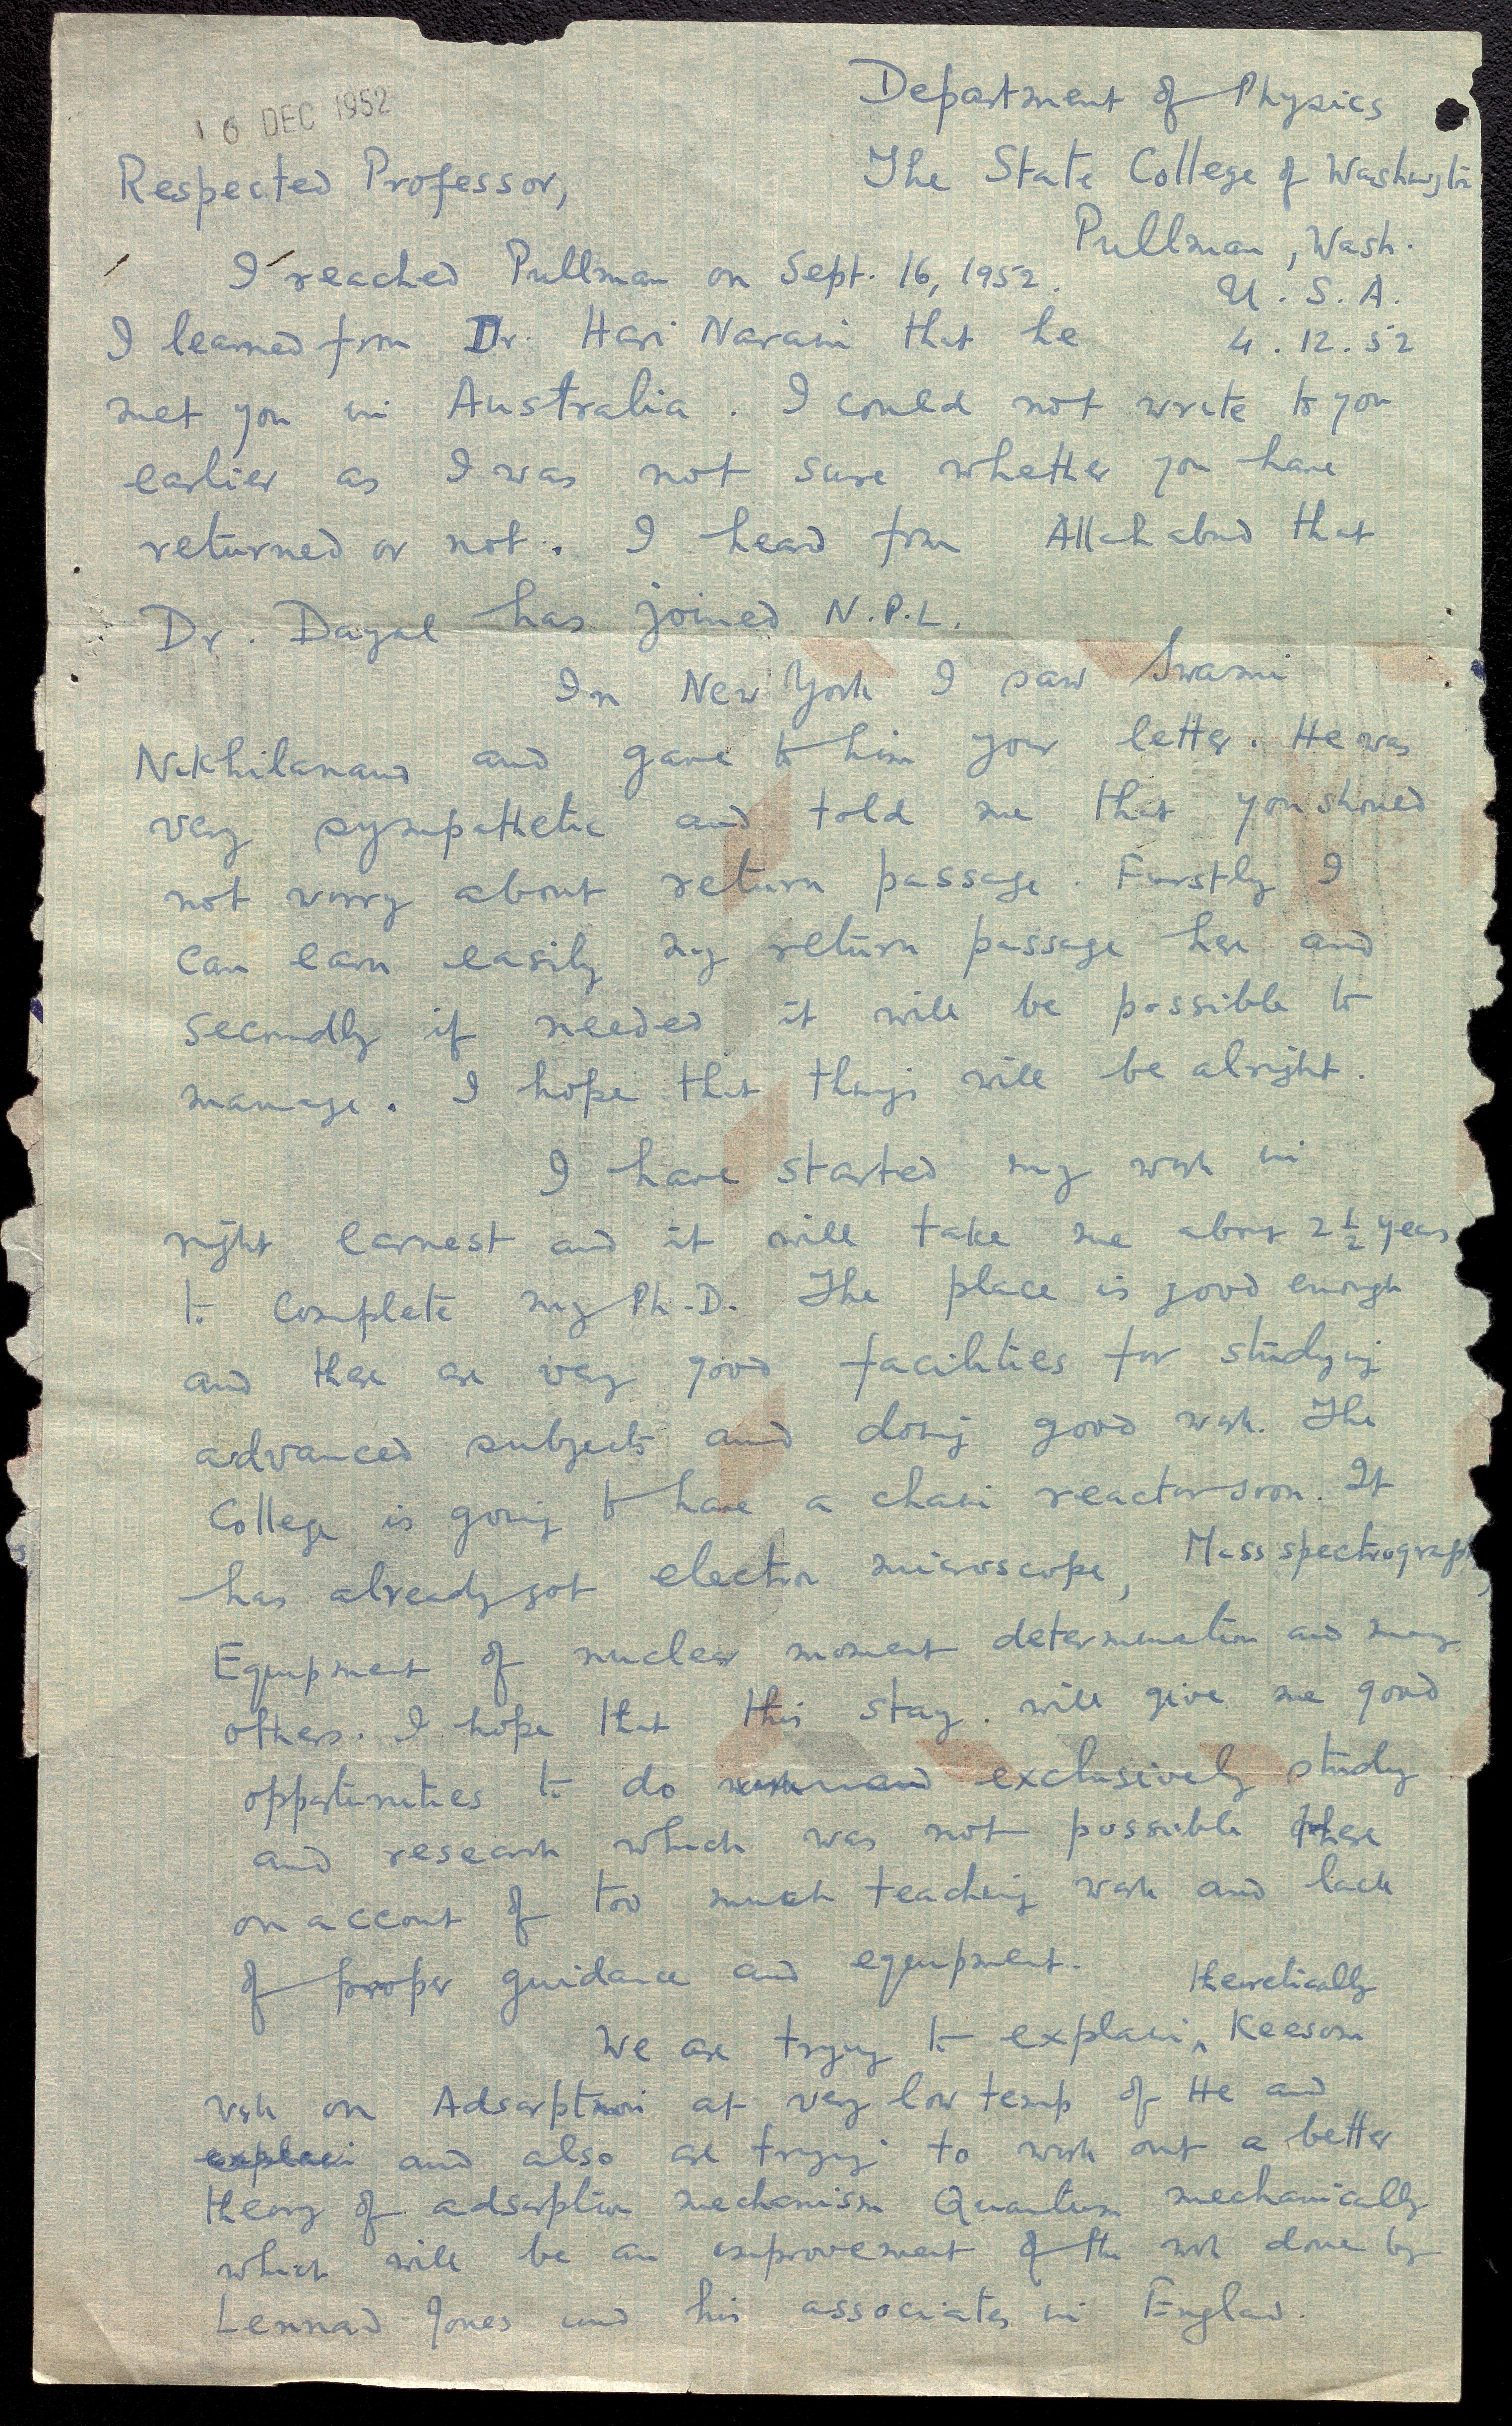 16 DEC 1952
Department of Physics
The State College of Washington
Pullman, Wash.
U. S. A.
4. 12. 52
Respected Professor,
I reached Pullman on Sept. 16, 1952.
I learned from Dr. Hari Narain that he
met you in Australia. I could not write to you
earlier as I was not sure whether you have
returned or not. I heard from Allahabad that
Dr. Dayal has joined N.P.L.
In New York I saw Swami
Nikhilanand and gave to him your letter. He was
very sympathetic and told me that you should
not worry about return passage. Firstly I
can earn easily my return passage here and
secondly if needed it will be possible to
manage. I hope that things will be alright.
I have started my work in
right earnest and it will take me about 2 1/2 years
to complete my Ph.D. The place is good enough
and there are very good facilities for studying
advanced subjects and doing good work. The
College is going to have a chain reactor soon. It
has already got electron microscope, Mass spectrograph,
Equipment of nuclear moment determination and many
others. I hope that this stay will give me good
opportunities to do exclusively study
and research which was not possible there
on account of too much teaching work and lack
of proper guidance and equipment.
We are trying to explain theoretically Keesom
work on Adsorption at very low temp of He and
explain and also are trying to work out a better
theory of adsorption mechanism Quantum mechanically
which will be an improvement of the work done by
Lennad Jones and his associates in England.